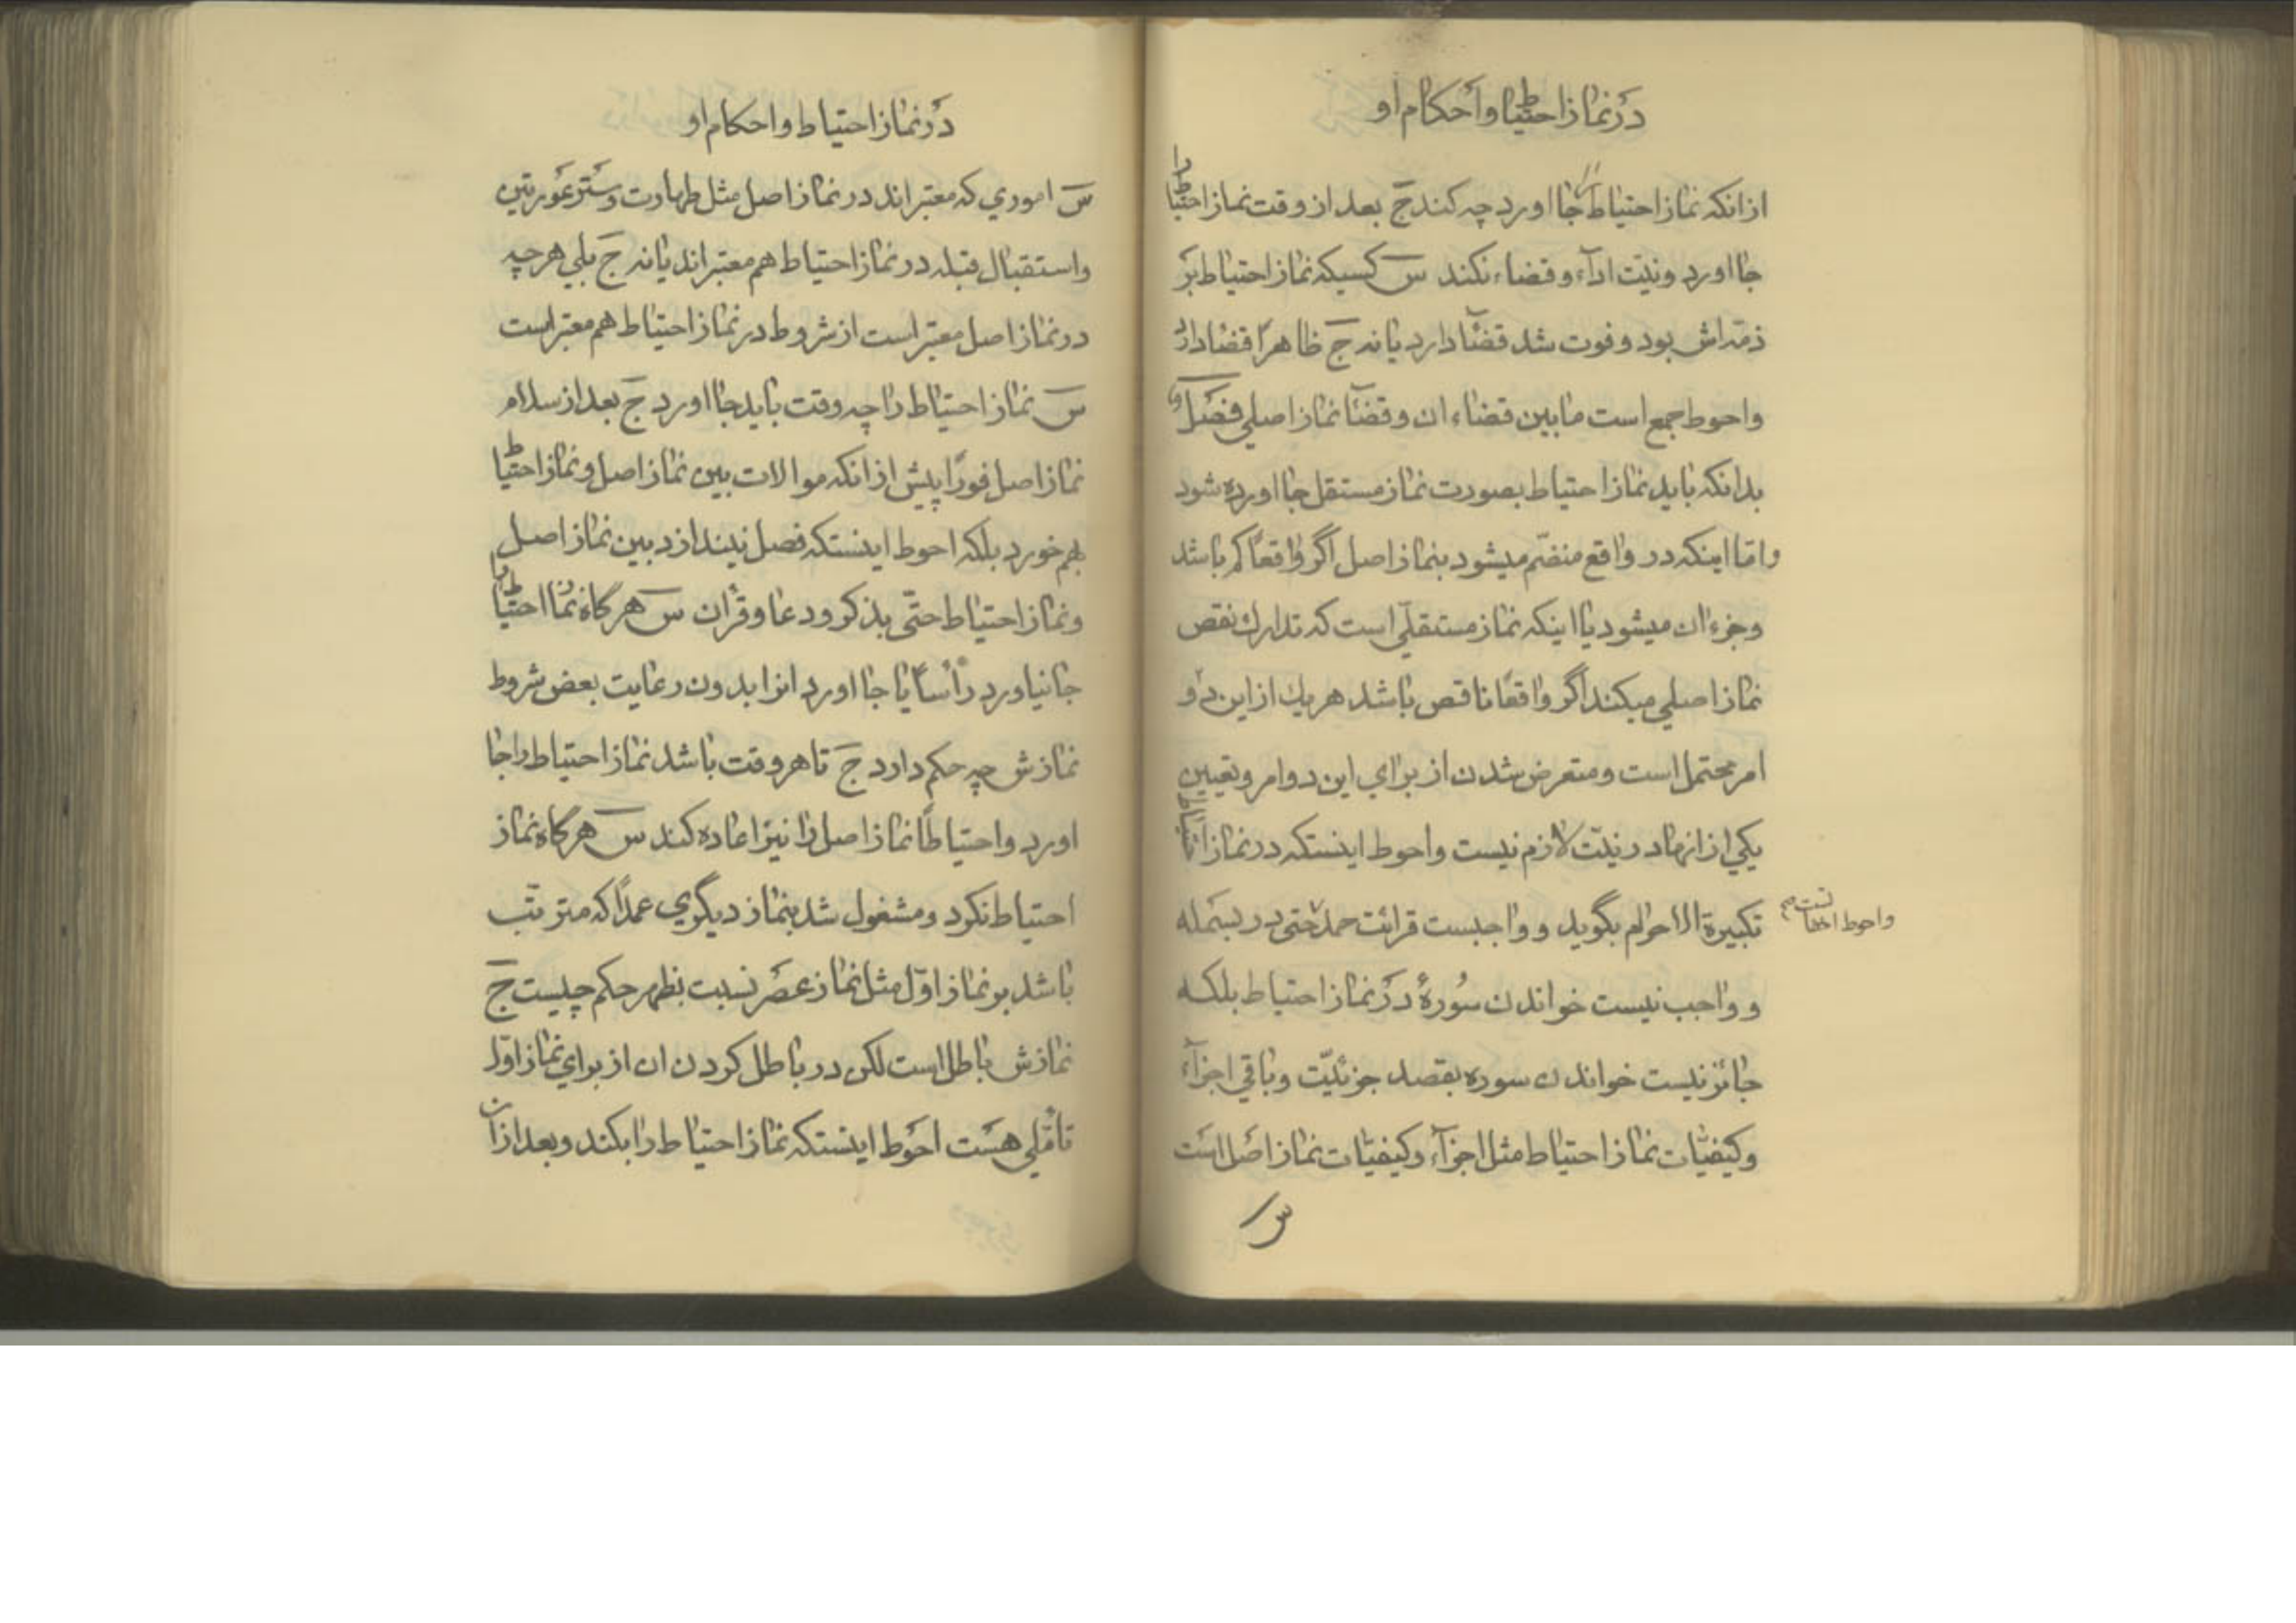 در نماز احتیاط و احکام او
از انکه نماز احتیاط را جا اورد چه کند ج بعد از وقت نماز احتیاط را
جا اورد و نیّت ادآء و قضاء نکند س کسیکه نماز احتیاط بر
ذمّه اش بود و فوت شد قضآ دارد یا نه ج ظاهرًا قضا دارد
و احوط جمع است ما بین قضاء ان و قضآ نماز اصلی فصل
بدانکه باید نماز احتیاط بصورت نماز مستقل جا اورده شود
و امّا اینکه در واقع منضّم میشود بنماز اصل اگر واقعًا کم باشد
و جزء ان میشود یا اینکه نماز مستقلّی است که تدارك نقص
نماز اصلی میکند اگر واقعًا ناقص باشد هر یك از این دو
امر محتمل است و متعرض شدن از برای این دو امر و تعیین
یکی از انها در نیّت لازم نیست و احوط اینستکه در نماز احتیاط
تکبیرة الاحرام بگوید و واجبست قرائت حمد حتی در بسمله
و احوط اخفات است
و واجب نیست خواندن سُورهٔ در نماز احتیاط بلکه
جائز نیست خواندن سوره بقصد جزئیّت و باقی اجزآء
و کیفیّات نماز احتیاط مثل اجزآء و کیفیّات نماز اصل است
س
در نماز احتیاط و احکام او
س اموری که معتبر اند در نماز اصل مثل طهارت و ستر عورتین
و استقبال قبله در نماز احتیاط هم معتبر اند یا نه ج بلی هر چه
در نماز اصل معتبر است از شروط در نماز احتیاط هم معتبر است
س نماز احتیاط را چه وقت باید جا اورد ج بعد از سلام
نماز اصل فورًا پیش از انکه موالات بین نماز اصل و نماز احتیاط
بهم خورد بلکه احوط اینستکه فصل نیندازد بین نماز اصل
و نماز احتیاط حتّی بذکر و دعا و قرأن س هر گاه نماز احتیاط را
جا نیاورد رأسًا یا جا اورد انرا بدون رعایت بعض شروط
نمازش چه حکم دارد ج تا هر وقت باشد نماز احتیاط را جا
اورد و احتیاطًا نماز اصل را نیز اعاده کند س هر گاه نماز
احتیاط نکرد و مشغول شد بنماز دیگری عمدًا که مترتّب
باشد بر نماز اوّل مثل نماز عصر نسبت بظهر حکم چیست ج
نمازش باطل است لکن در باطل کردن ان از برای نماز اوّل
تأمّلی هست احوط اینستکه نماز احتیاط را بکند و بعد از ان